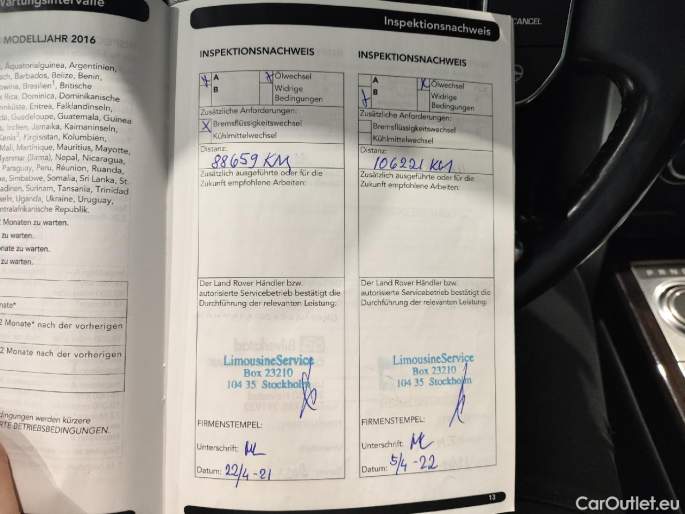 Wartungsintervalle
MODELLJAHR 2016
, Äquatorialguinea, Argentinien,
ach, Barbados, Belize, Benin,
owina, Brasilien¹, Britische
Rica, Dominica, Dominikanische
enküste, Eritrea, Falklandinseln,
Guadeloupe, Guatemala, Guinea
Indien, Jamaika, Kaimaninseln,
Kirgisistan, Kolumbien,
Mali, Martinique, Mauritius, Mayotte,
Myanmar (Birma), Nepal, Nicaragua,
Paraguay, Peru, Réunion, Ruanda,
Simbabwe, Somalia, Sri Lanka, St.
adinen, Surinam, Tansania, Trinidad
seln, Uganda, Ukraine, Uruguay,
ntralafrikanische Republik.
Monaten zu warten.
zu warten.
nate zu warten.
zu warten.
nate*
2 Monate* nach der vorherigen
2 Monate nach der vorherigen
dingungen werden kürzere
RTE BETRIEBSBEDINGUNGEN.
Inspektionsnachweis
INSPEKTIONSNACHWEIS
A
Ölwechsel
B
Widrige
Bedingungen
Zusätzliche Anforderungen:
Bremsflüssigkeitswechsel
Kühlmittelwechsel
Distanz:
88659 KM
Zusätzlich ausgeführte oder für die
Zukunft empfohlene Arbeiten:
Der Land Rover Händler bzw.
autorisierte Servicebetrieb bestätigt die
Durchführung der relevanten Leistung:
LimousineService
Box 23210
104 35 Stockholm
FIRMENSTEMPEL:
Unterschrift:
Datum: 22/4-21
INSPEKTIONSNACHWEIS
A
Ölwechsel
B
Widrige
Bedingungen
Zusätzliche Anforderungen:
Bremsflüssigkeitswechsel
Kühlmittelwechsel
Distanz:
106221 KM
Zusätzlich ausgeführte oder für die
Zukunft empfohlene Arbeiten:
Der Land Rover Händler bzw.
autorisierte Servicebetrieb bestätigt die
Durchführung der relevanten Leistung:
LimousineService
Box 23210
104 35 Stockholm
FIRMENSTEMPEL:
Unterschrift:
Datum: 5/4-22
13
CANCEL
CarOutlet.eu